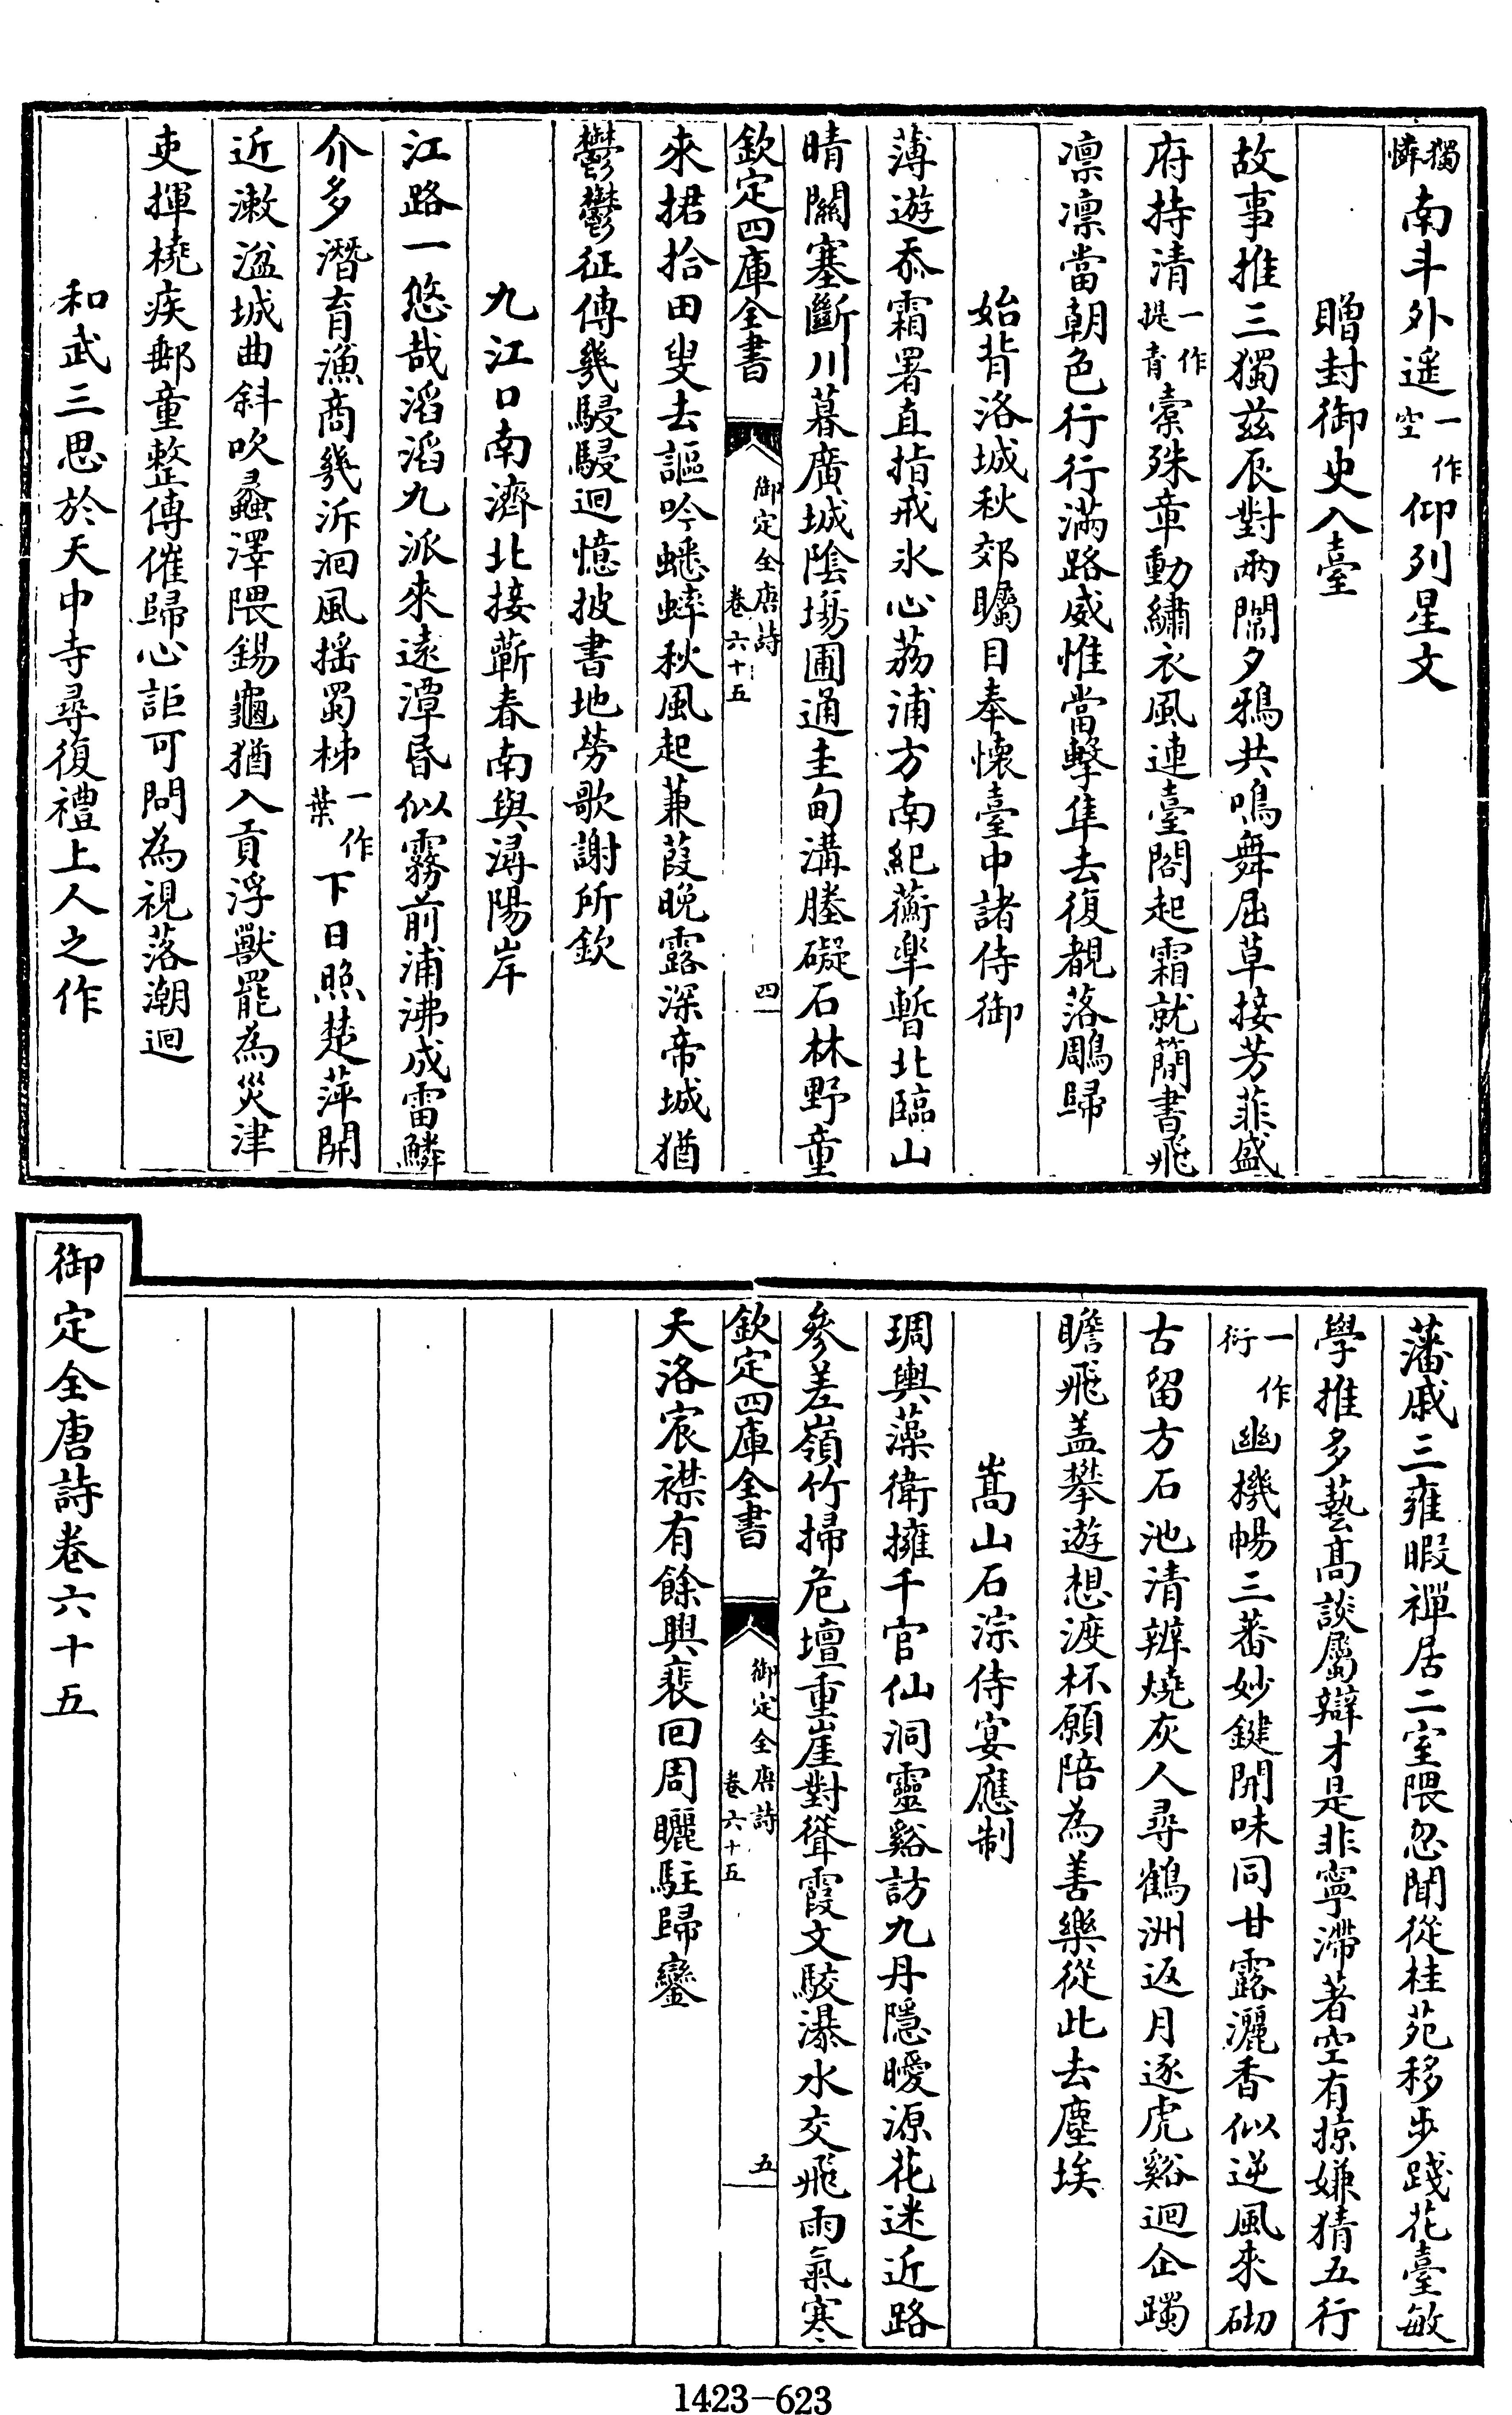 獨憐南斗外遥一作空仰列星文
贈封御史入臺
故事推三獨兹辰對兩闈夕鴉共鳴舞屈草接芳菲盛
府持清一作提青橐殊章動繡衣風連臺閣起霜就簡書飛
凛凛當朝色行行滿路威惟當擊隼去復覩落鵰歸
始背洛城秋郊矚目奉懷臺中諸侍御
薄遊忝霜署直指戒氷心荔浦方南紀蘅臯暫北臨山
晴關塞斷川暮廣城陰場圃通圭甸溝塍礙石林野童
欽定四庫全書
御定全唐詩
卷六十五
四
來捃拾田叟去謳吟蟋蟀秋風起蒹葭晚露深帝城猶
鬱鬱征傳幾駸駸迴憶披書地勞歌謝所欽
九江口南濟北接蘄春南與潯陽岸
江路一悠哉滔滔九派來逺潭昏似霧前浦沸成雷鱗
介多潛育漁商幾泝洄風揺蜀柹一作葉下日照楚萍開
近漱湓城曲斜吹蠡澤隈錫龜猶入貢浮獸罷為災津
吏揮橈疾郵童整傳催歸心詎可問為視落潮迴
和武三思於天中寺尋復禮上人之作
藩戚三雍暇禪居二室隈忽聞從桂苑移步踐花臺敏
學推多藝髙談屬辯才是非寧滯著空有掠嫌猜五行
一作衍幽機暢三蕃妙鍵開味同甘露灑香似逆風來砌
古留方石池清辨燒灰人尋鶴洲返月逐虎谿迴企躅
瞻飛盖攀遊想渡杯願陪為善樂從此去塵埃
嵩山石淙侍宴應制
琱輿藻衛擁千官仙洞靈谿訪九丹隱曖源花迷近路
參差嶺竹掃危壇重崖對聳霞文駮瀑水交飛雨氣寒
欽定四庫全書
御定全唐詩
卷六十五
五
天洛宸襟有餘興裴回周矖駐歸鑾
御定全唐詩卷六十五
1423-623